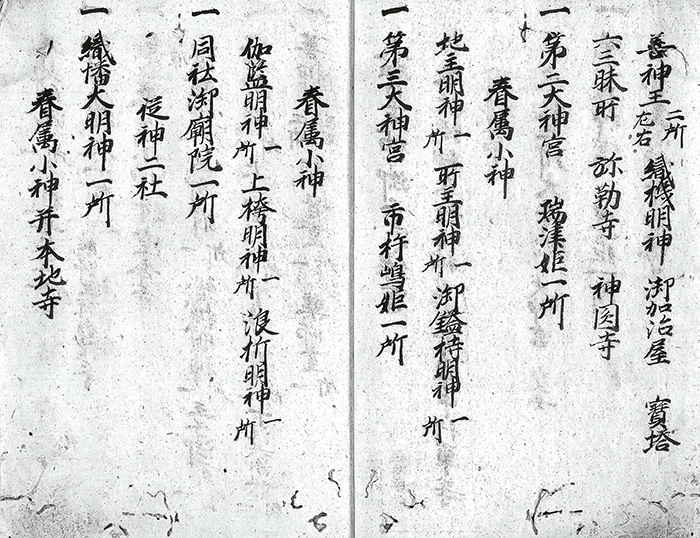 善神王 二所 左右 織機明神 御加治屋 寶塔
六三昧所 弥勒寺 神医寺
一 第二大神宮 瑞津姫一所
眷属小神
地主明神一所 所主明神一所 御鎰持明神一所
一 第三大神宮 市杵嶋姫一所
眷属小神
伽藍明神一所 上袴明神一所 浪折明神一所
一 同社御廟院一所
従神二社
一 織幡大明神一所
眷属小神并本地寺